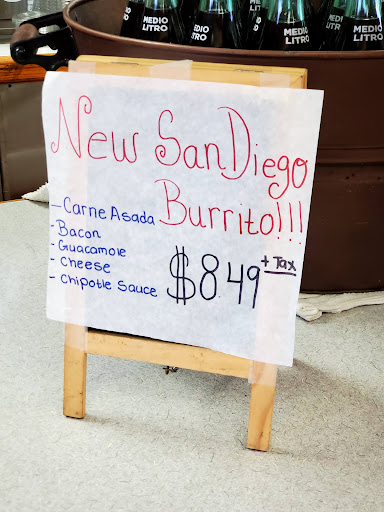 MEDIO LITRO
MEDIO LITRO
MEDIO LITRO
MEDIO LITRO
New San Diego
Burrito!!!
- Carne Asada
- Bacon
- Guacamole
- Cheese
- Chipotle Sauce
$8.49 + Tax